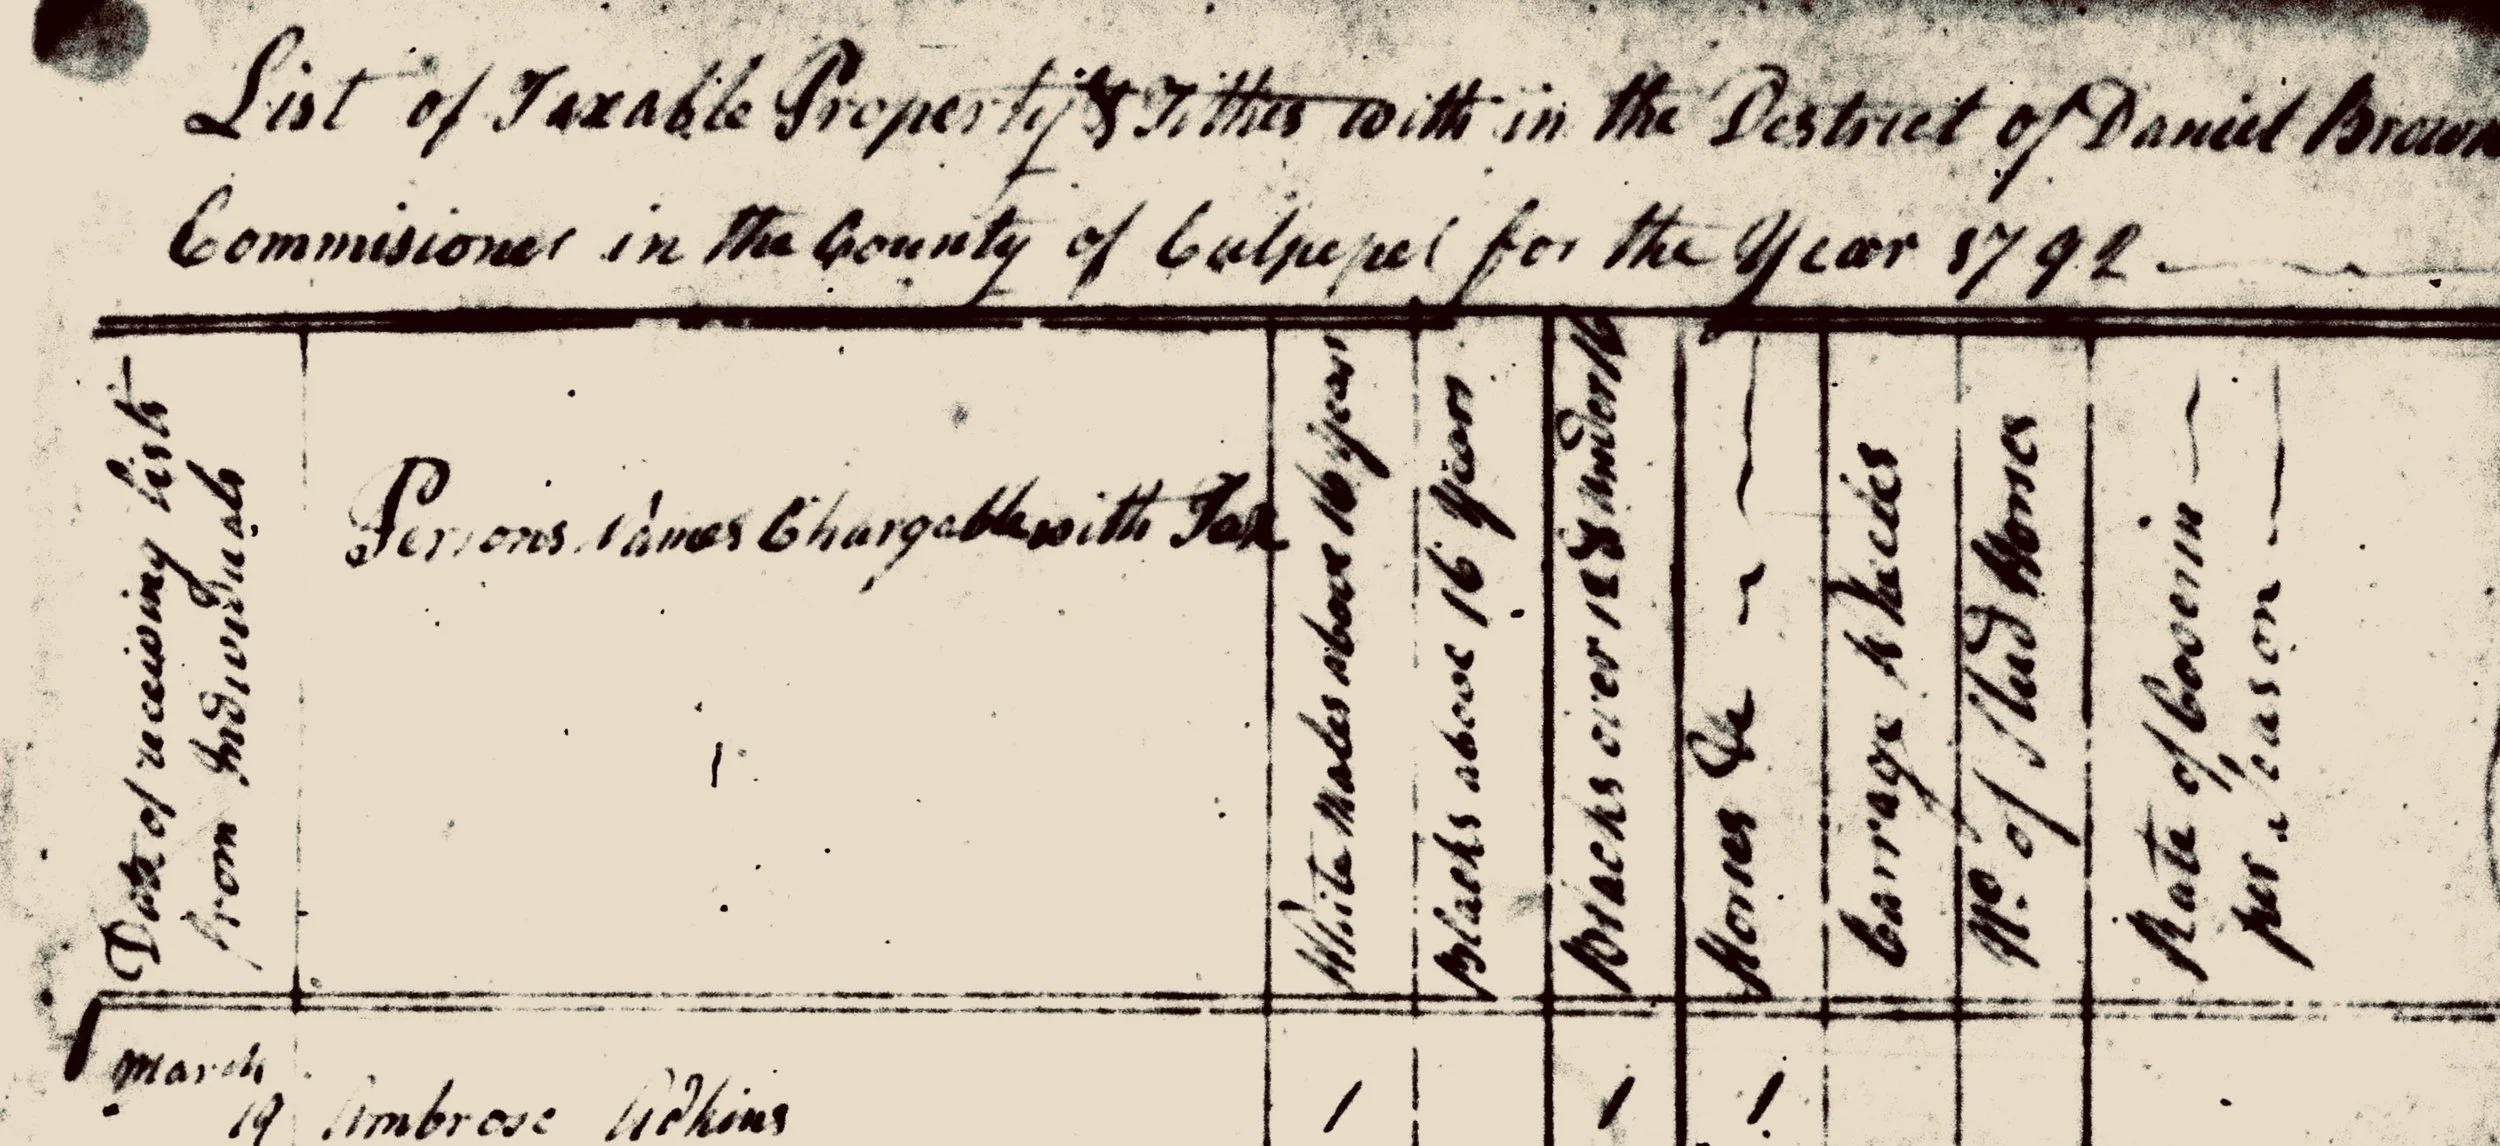 List of Taxable Property & Tithes with in the District of Daniel Brown
Commisioner in the County of Culpeper for the Year 1792
Date of receiving lists
from Individuals
Persons Names Chargable with Tax
White Males above 16 years
Blacks above 16 years
Blacks over 12 & under 16
Horses &c
Carrage Wheeles
No. of Stud Horses
Rate of Coverin
per season
March
19 Ambrose Adkins 1 1 1